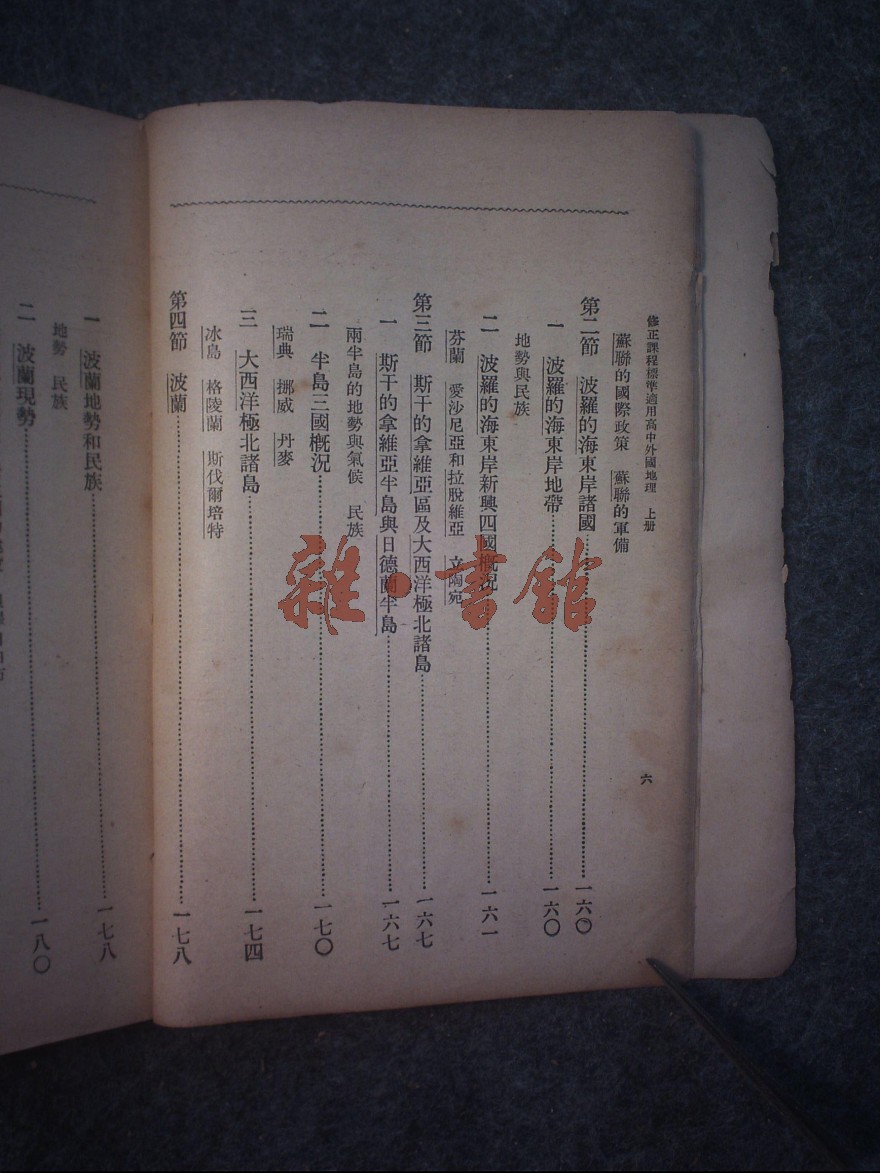 修正課程標準適用高中外國地理 上册
六
蘇聯的國際政策 蘇聯的軍備
第二節 波羅的海東岸諸國……一六〇
一 波羅的海東岸地帶……一六〇
地勢與民族
二 波羅的海東岸新興四國概况……一六一
芬蘭 愛沙尼亞和拉脫維亞 立陶宛
第三節 斯干的拿維亞區及大西洋極北諸島……一六七
一 斯干的拿維亞半島與日德蘭半島……一六七
兩半島的地勢與氣候 民族
二 半島三國概况……一七〇
瑞典 挪威 丹麥
三 大西洋極北諸島……一七四
冰島 格陵蘭 斯伐爾培特
第四節 波蘭……一七八
一 波蘭地勢和民族……一七八
地勢 民族
二 波蘭現勢……一八〇
雜·書館